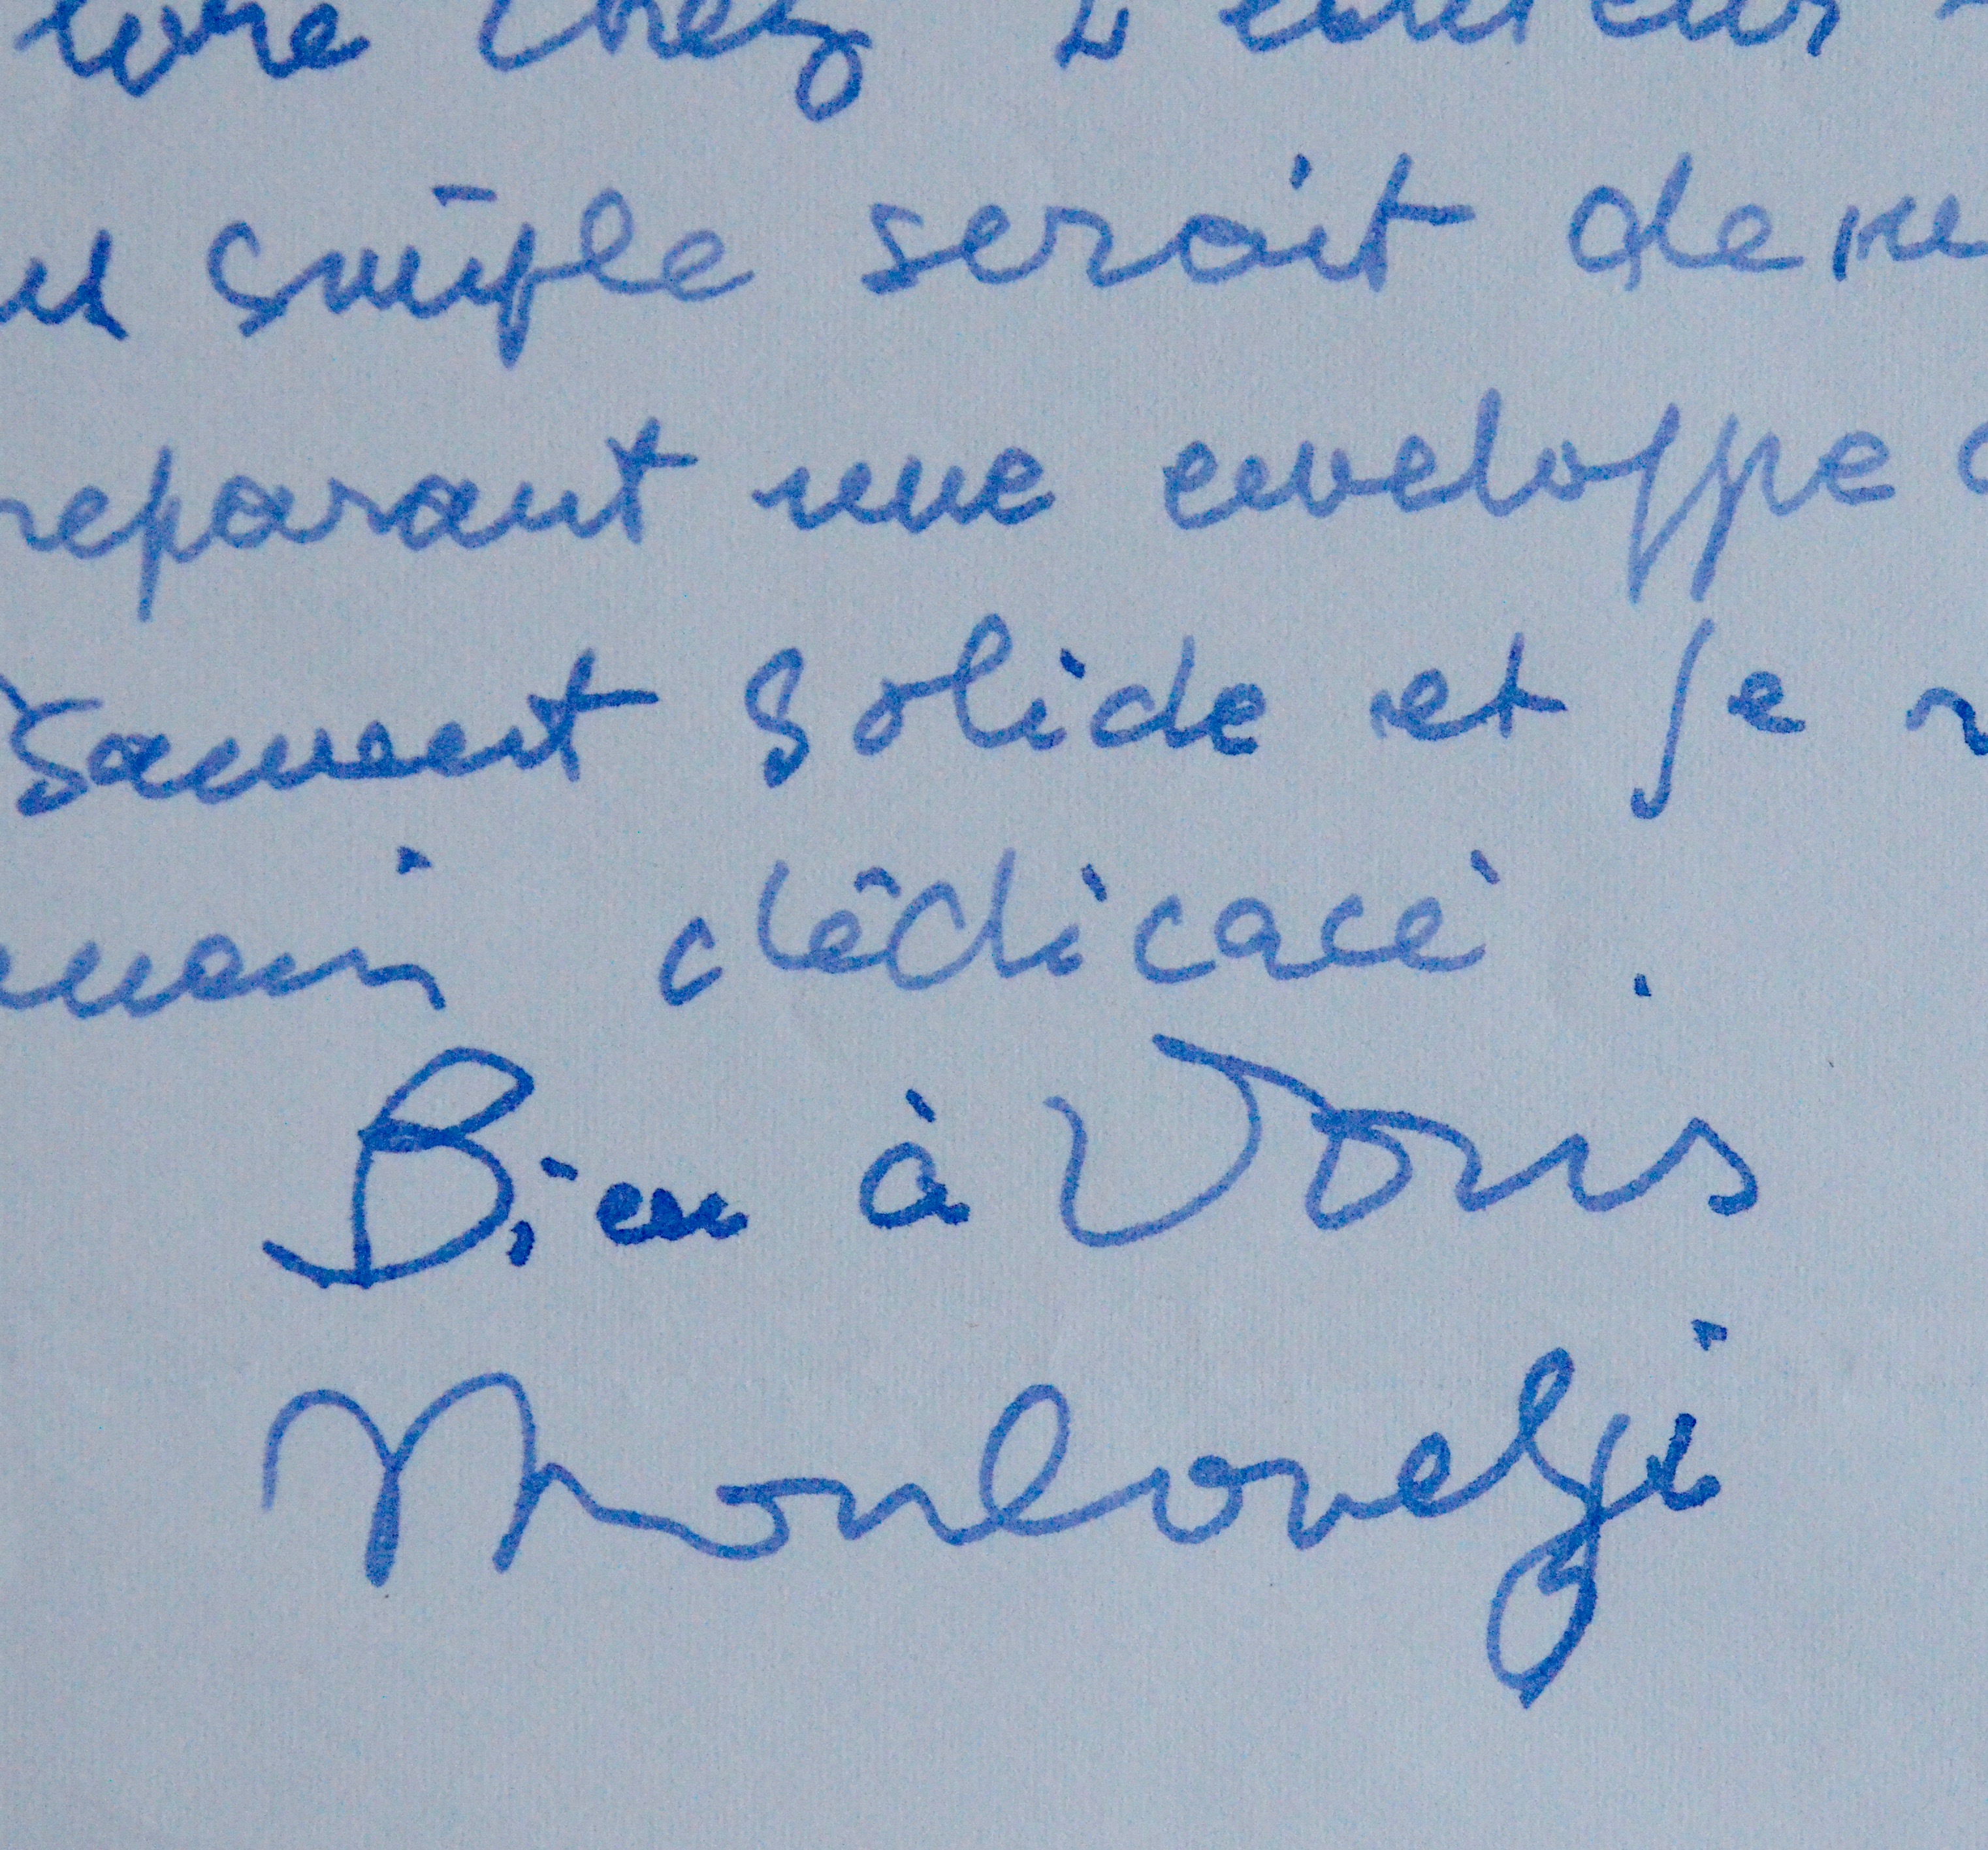 livre chez L'éditeur
simple serait de m
reparant une enveloppe
sament solide et je
main dédicacé.
Bien à Vous
Mouloudji